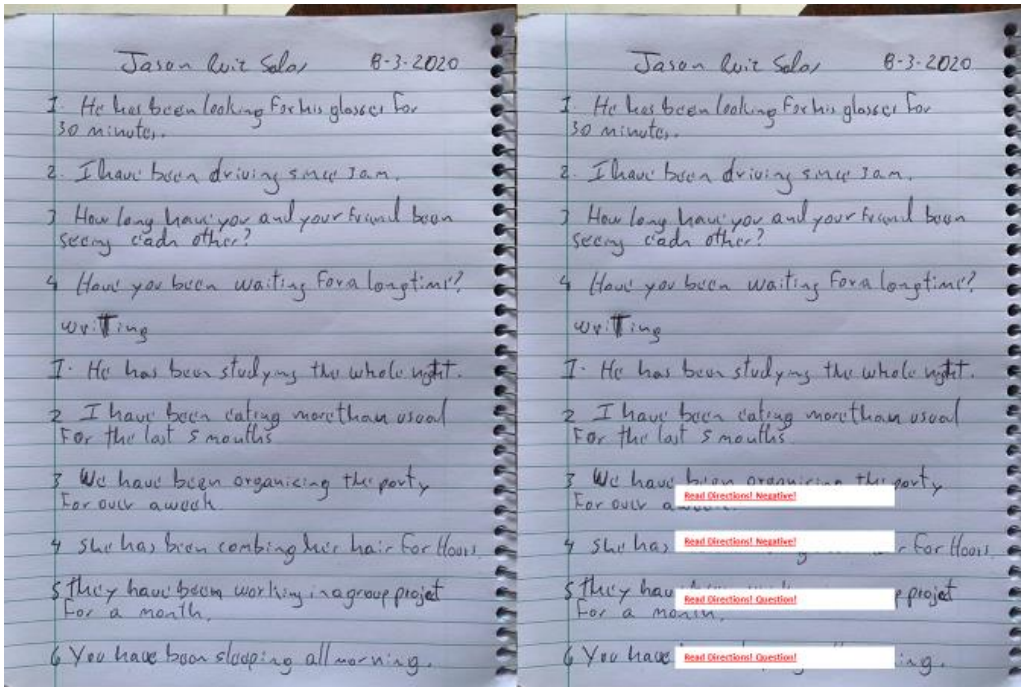 Jason Ruiz Salas 8-3-2020
1. He has been looking for his glasses for
30 minutes.
2. I have been driving since 3am.
3 How long have you and your friend been
seeing each other?
4 Have you been waiting for a longtime?
writing
1. He has been studying the whole night.
2 I have been eating morethan usual
For the last 5 mouths
3 We have been organicing the party
For over a week
4 she has been combing her hair for Hours.
5 they have been working in a group projet
For a month.
6 You have been sleeping all morning.
Jason Ruiz Salas 8-3-2020
1. He has been looking for his glasses for
30 minutes.
2. I have been driving since 3am.
3 How long have you and your friend been
seeing each other?
4 Have you been waiting for a longtime?
writing
1. He has been studying the whole night.
2 I have been eating morethan usual
For the last 5 mouths
3 We have been organicing the party
Read Directions! Negative!
For over a
4 she has
Read Directions! Negative!
for Hours.
5 they
Read Directions! Question!
projet
For a month.
6 You have
Read Directions! Question!